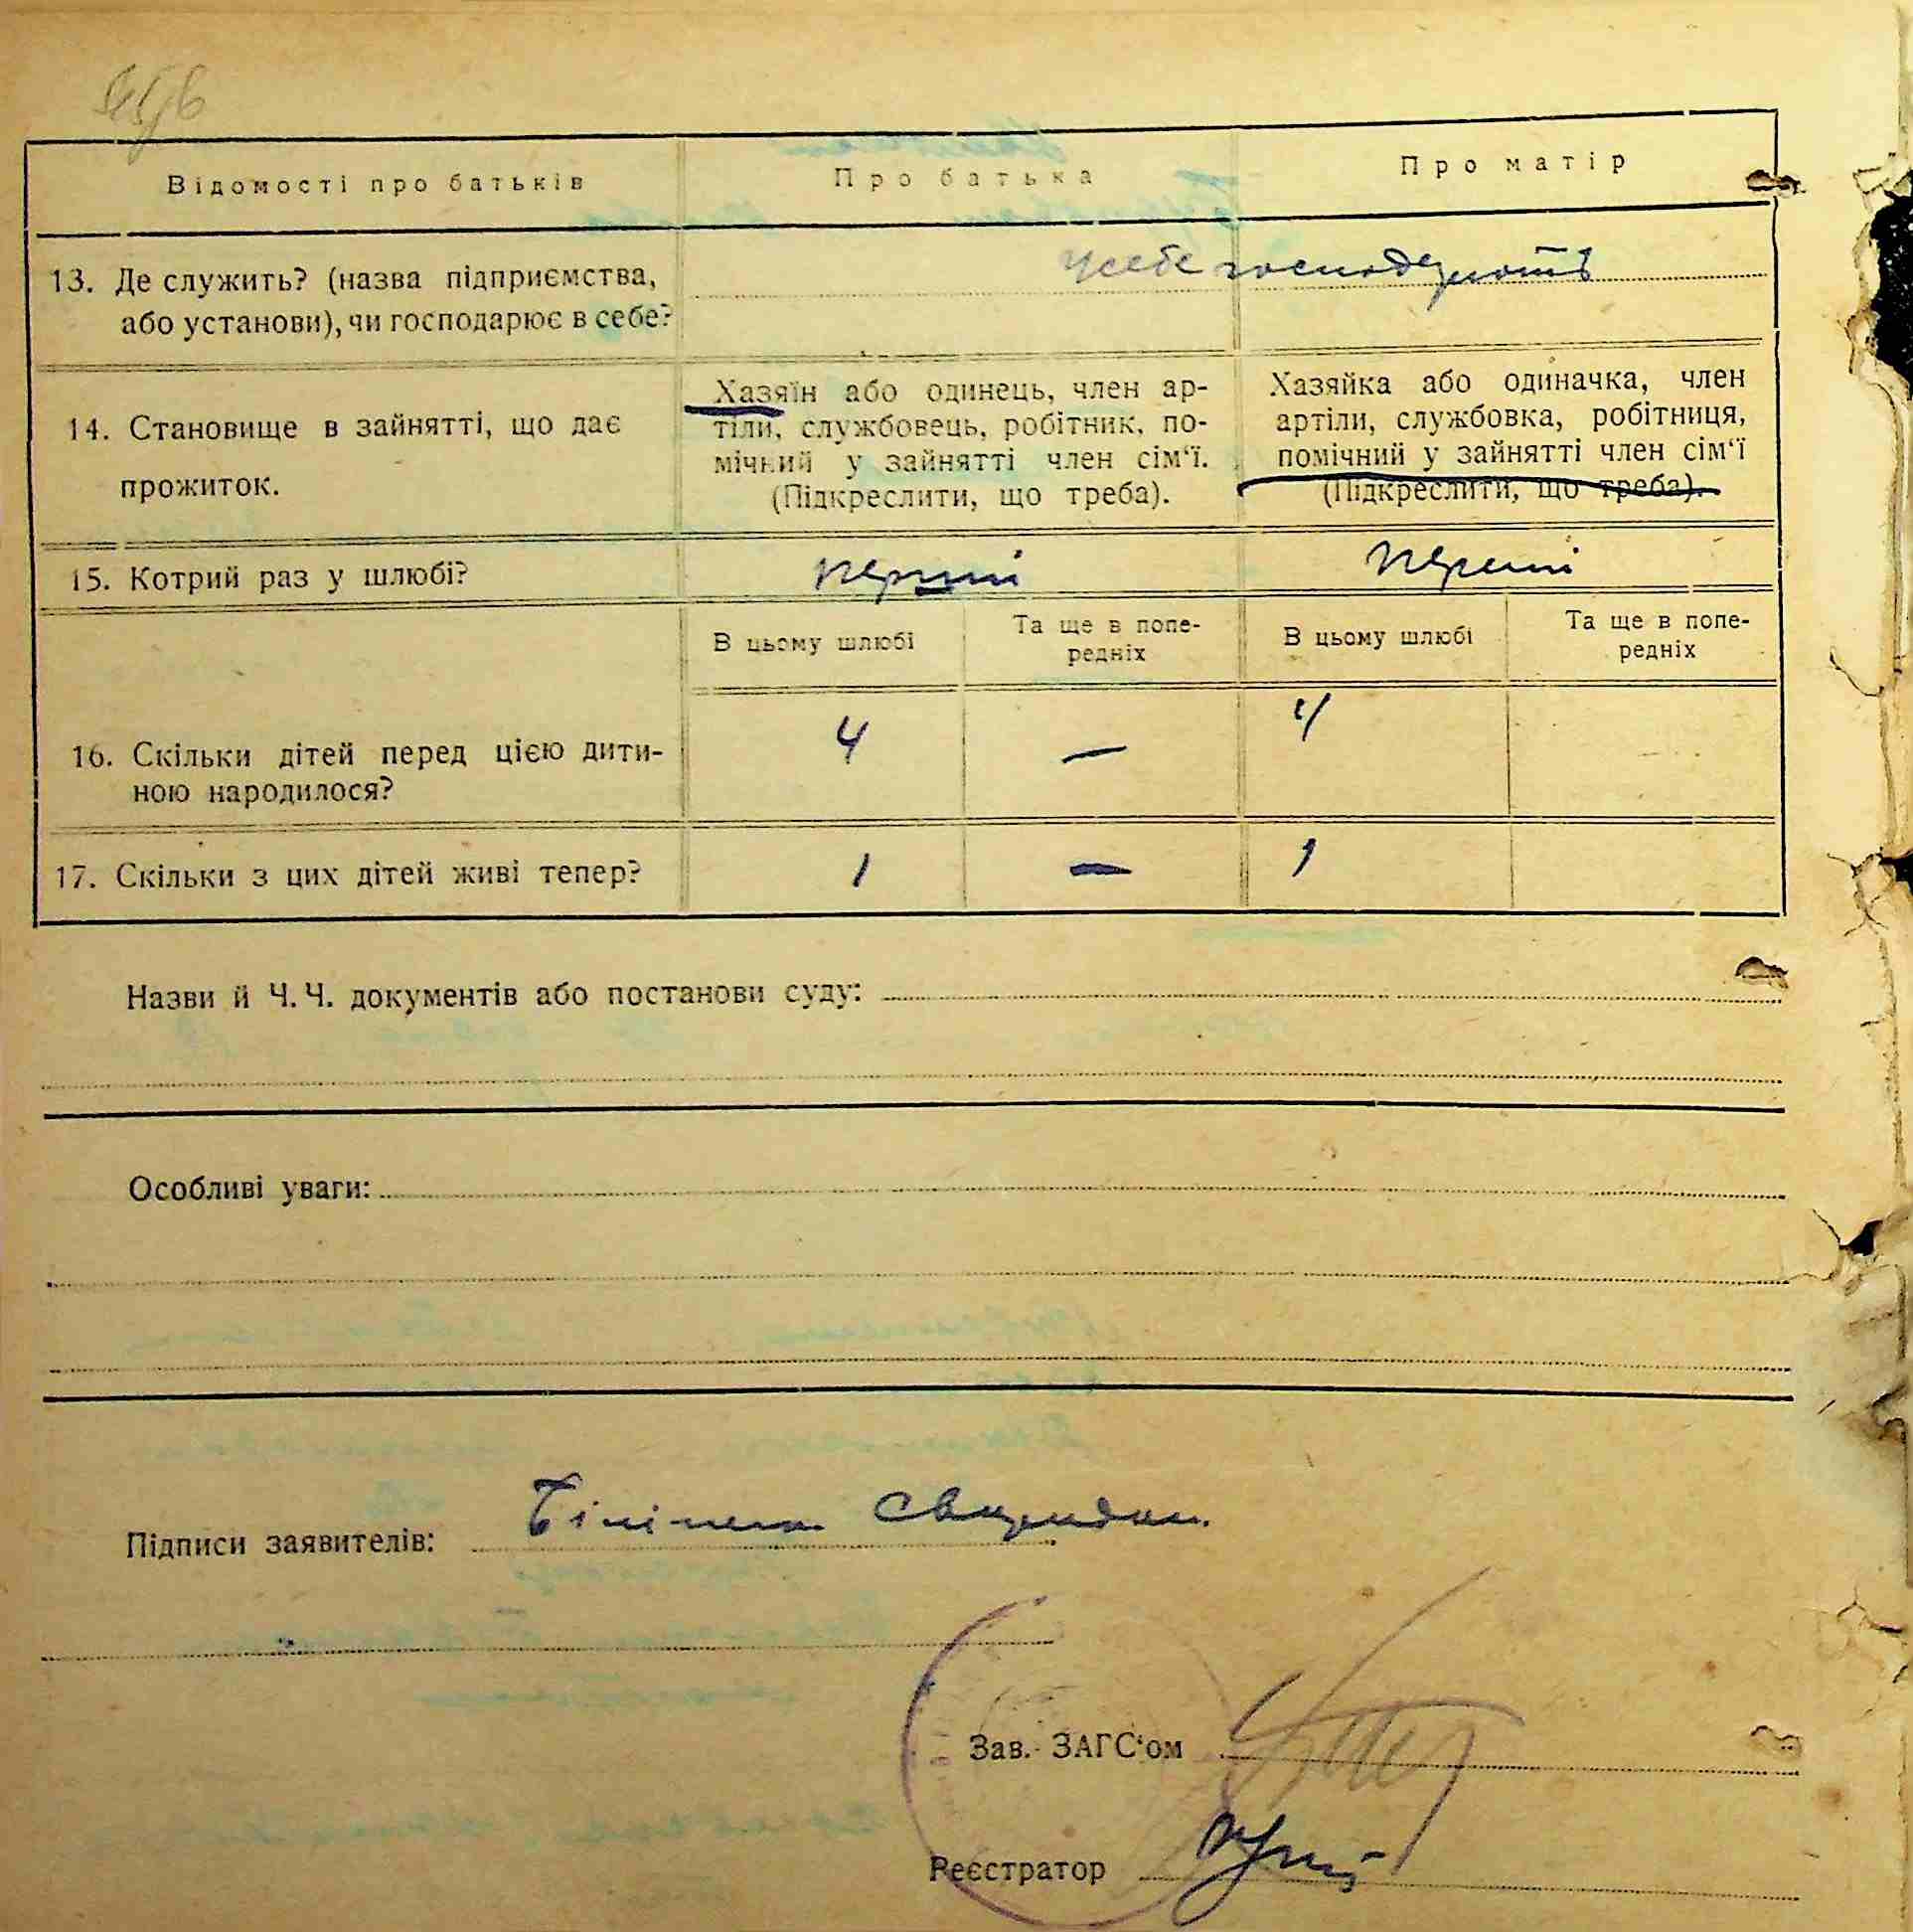 Відомості про батьків
Про батька
Про матір
13. Де служить? (назва підприємства,
або установи), чи господарює в себе?
усебе господарюють
14. Становище в зайнятті, що дає
прожиток.
Хазяїн або одинець, член ар-
тіли, службовець, робітник, по-
мічний у зайнятті член сім'ї.
(Підкреслити, що треба).
Хазяйка або одиначка, член
артіли, службовка, робітниця,
помічний у зайнятті член сім'ї
(Підкреслити, що треба).
15. Котрий раз у шлюбі?
перший
перший
В цьому шлюбі
Та ще в попе-
редніх
В цьому шлюбі
Та ще в попе-
редніх
16. Скільки дітей перед цією дити-
ною народилося?
4 — 4
17. Скільки з цих дітей живі тепер?
1 — 1
Назви й Ч. Ч. документів або постанови суду:
Особливі уваги:
Підписи заявителів:
Зав. ЗАГС'ом
Реєстратор